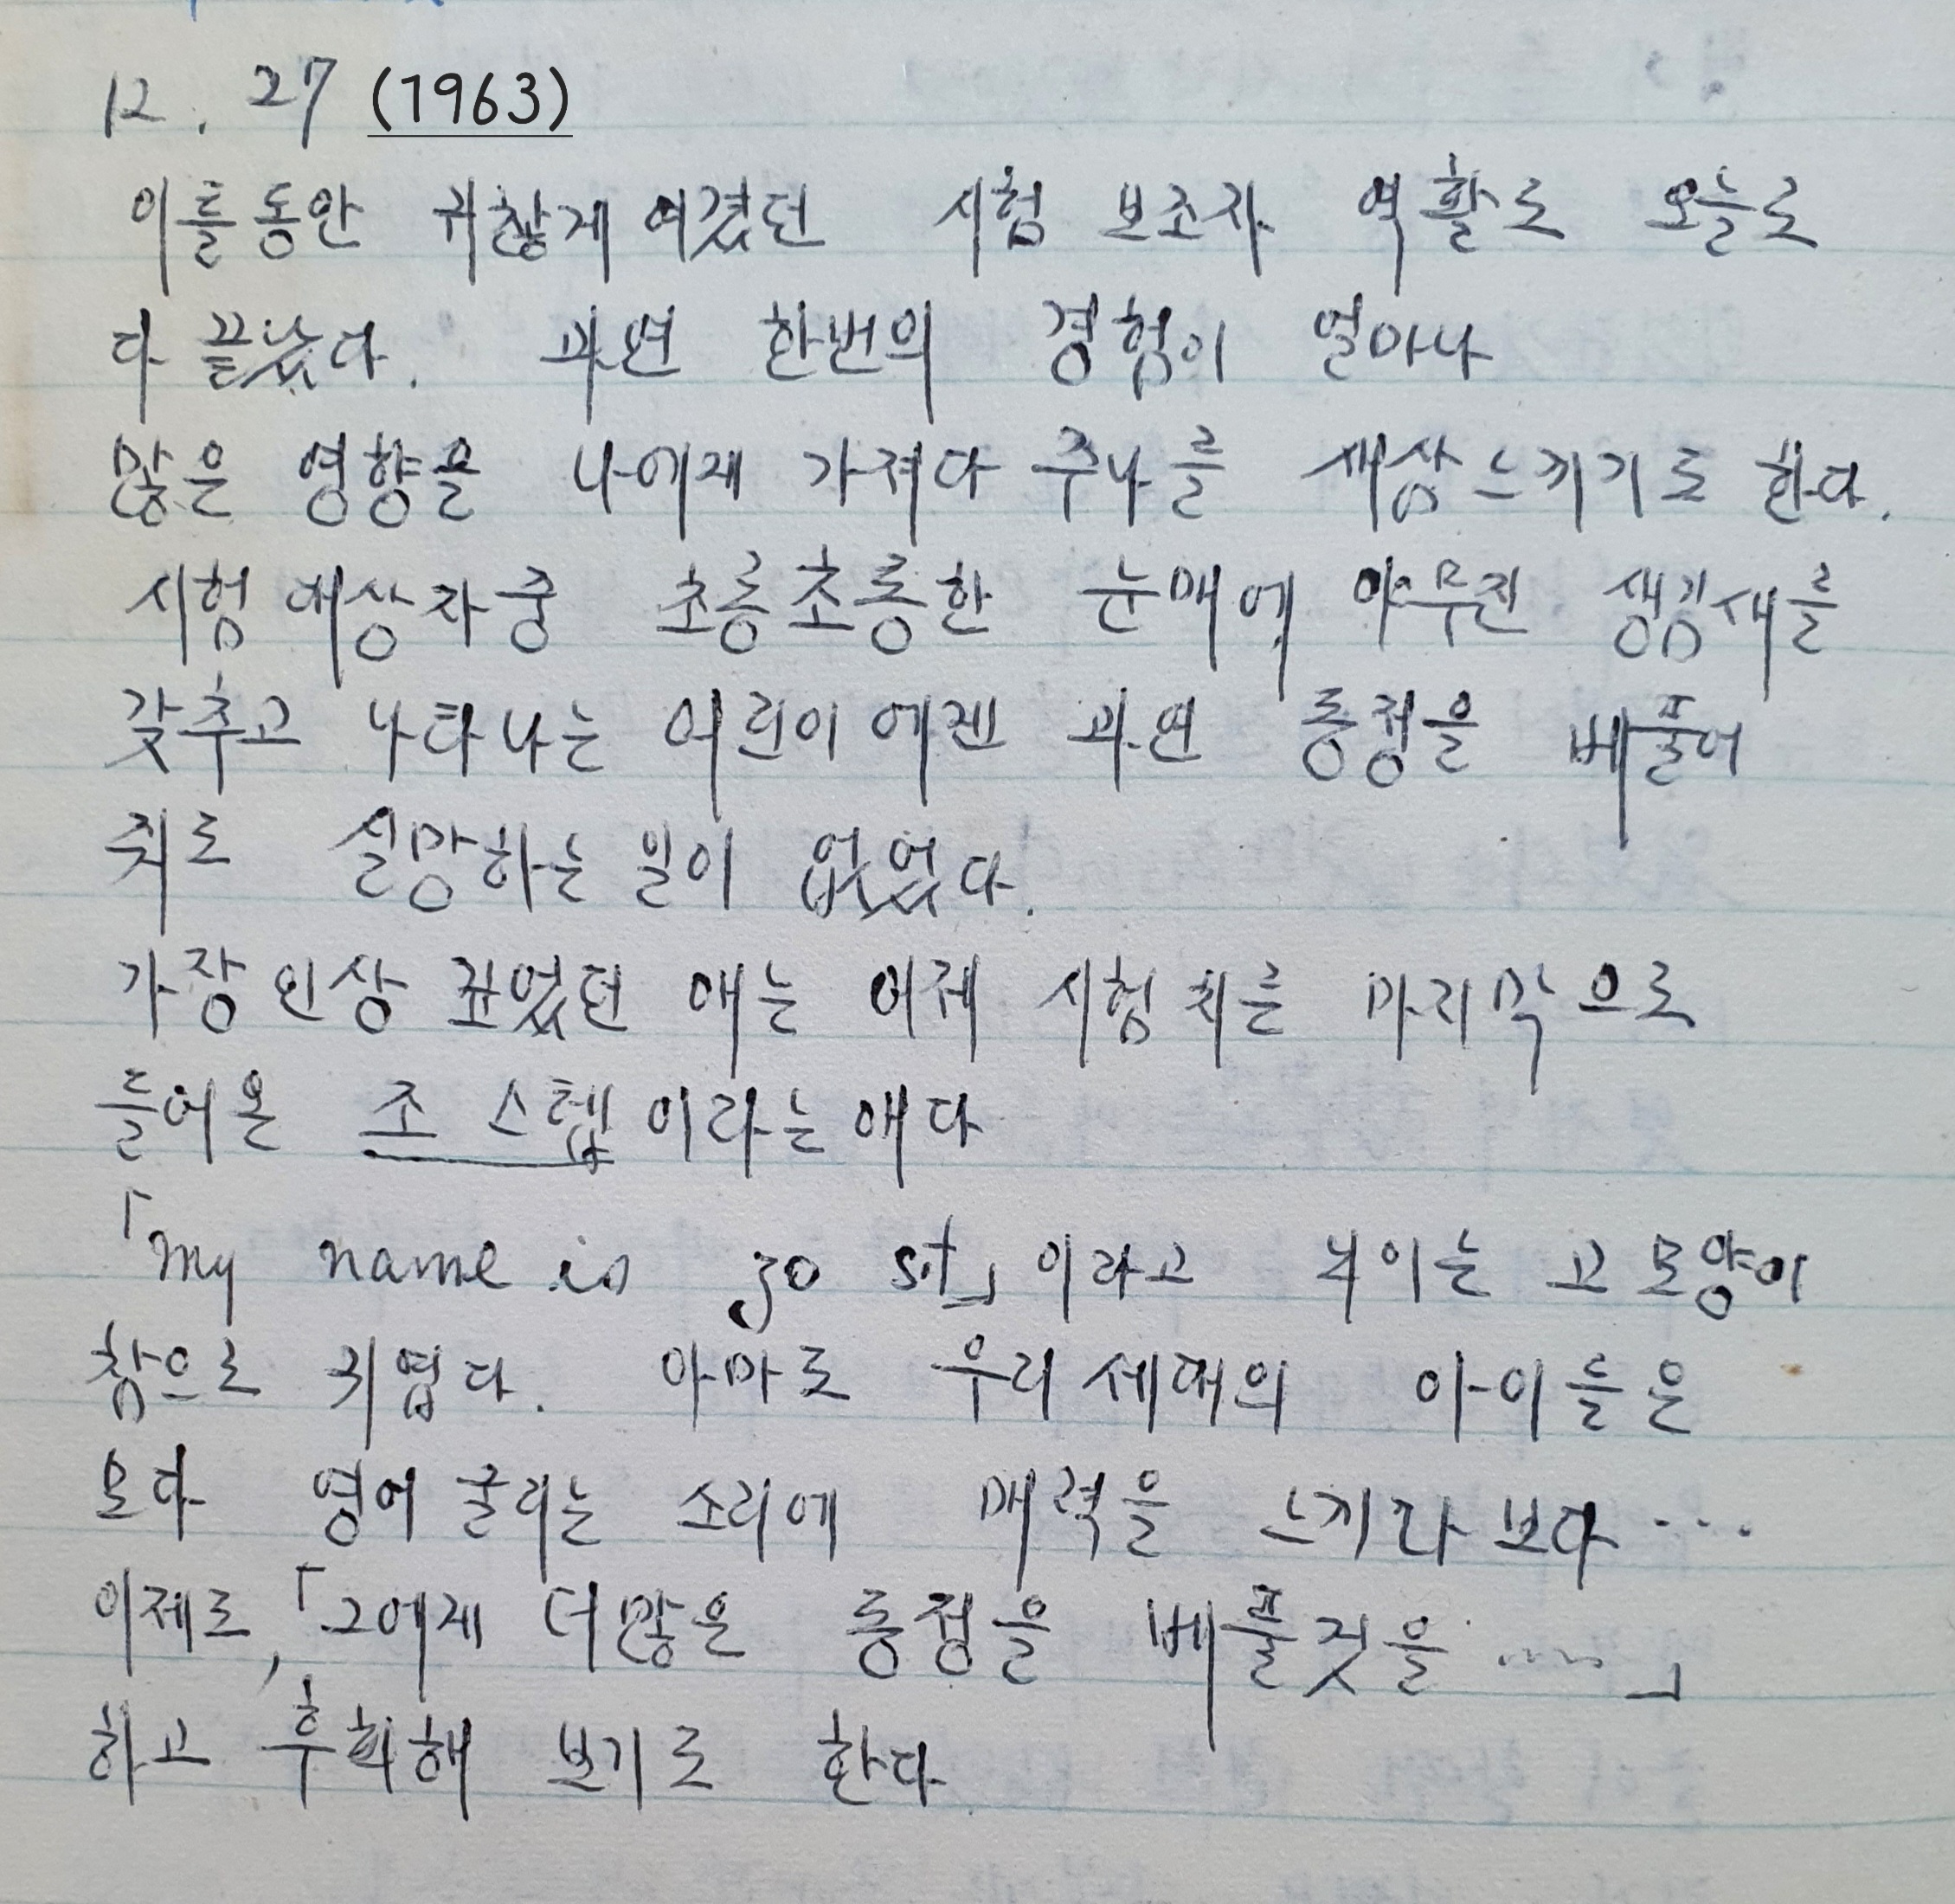 12. 27 (1963)
이틀동안 귀찮게 여겼던 시험 보조자 역활도 오늘로
다 끝났다. 과연 한번의 경험이 얼마나
많은 영향을 나에게 가져다 주나를 새삼느끼기도 한다.
시험 대상자중 초롱초롱한 눈매에 야무진 생김새를
갖추고 나타나는 어린이에겐 과연 동정을 베풀어
줘도 실망하는 일이 없었다.
가장 인상 깊었던 애는 어제 시험치른 마지막으로
들어온 조 스텝이라는애다
「my name is jo st」이라고 뇌이는 고 모양이
참으로 귀엽다. 아마도 우리세대의 아이들은
모다 영어굴리는 소리에 매력을 느끼나 보다 ···
이제도, 「그에게 더많은 동정을 베풀것을 ·····」
하고 후회해 보기도 한다